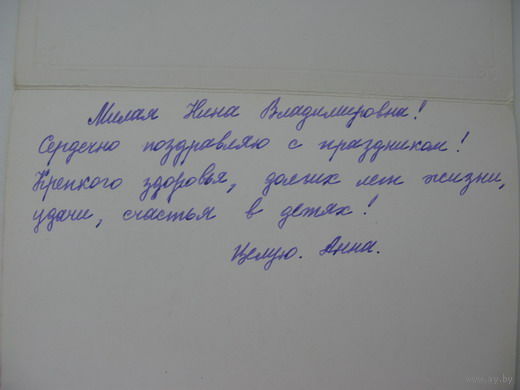 Милая Нина Владимировна!
Сердечно поздравляю с праздником!
Крепкого здоровья, долгих лет жизни,
удачи, счастья в детях!
Целую. Анна.
www.ay.by